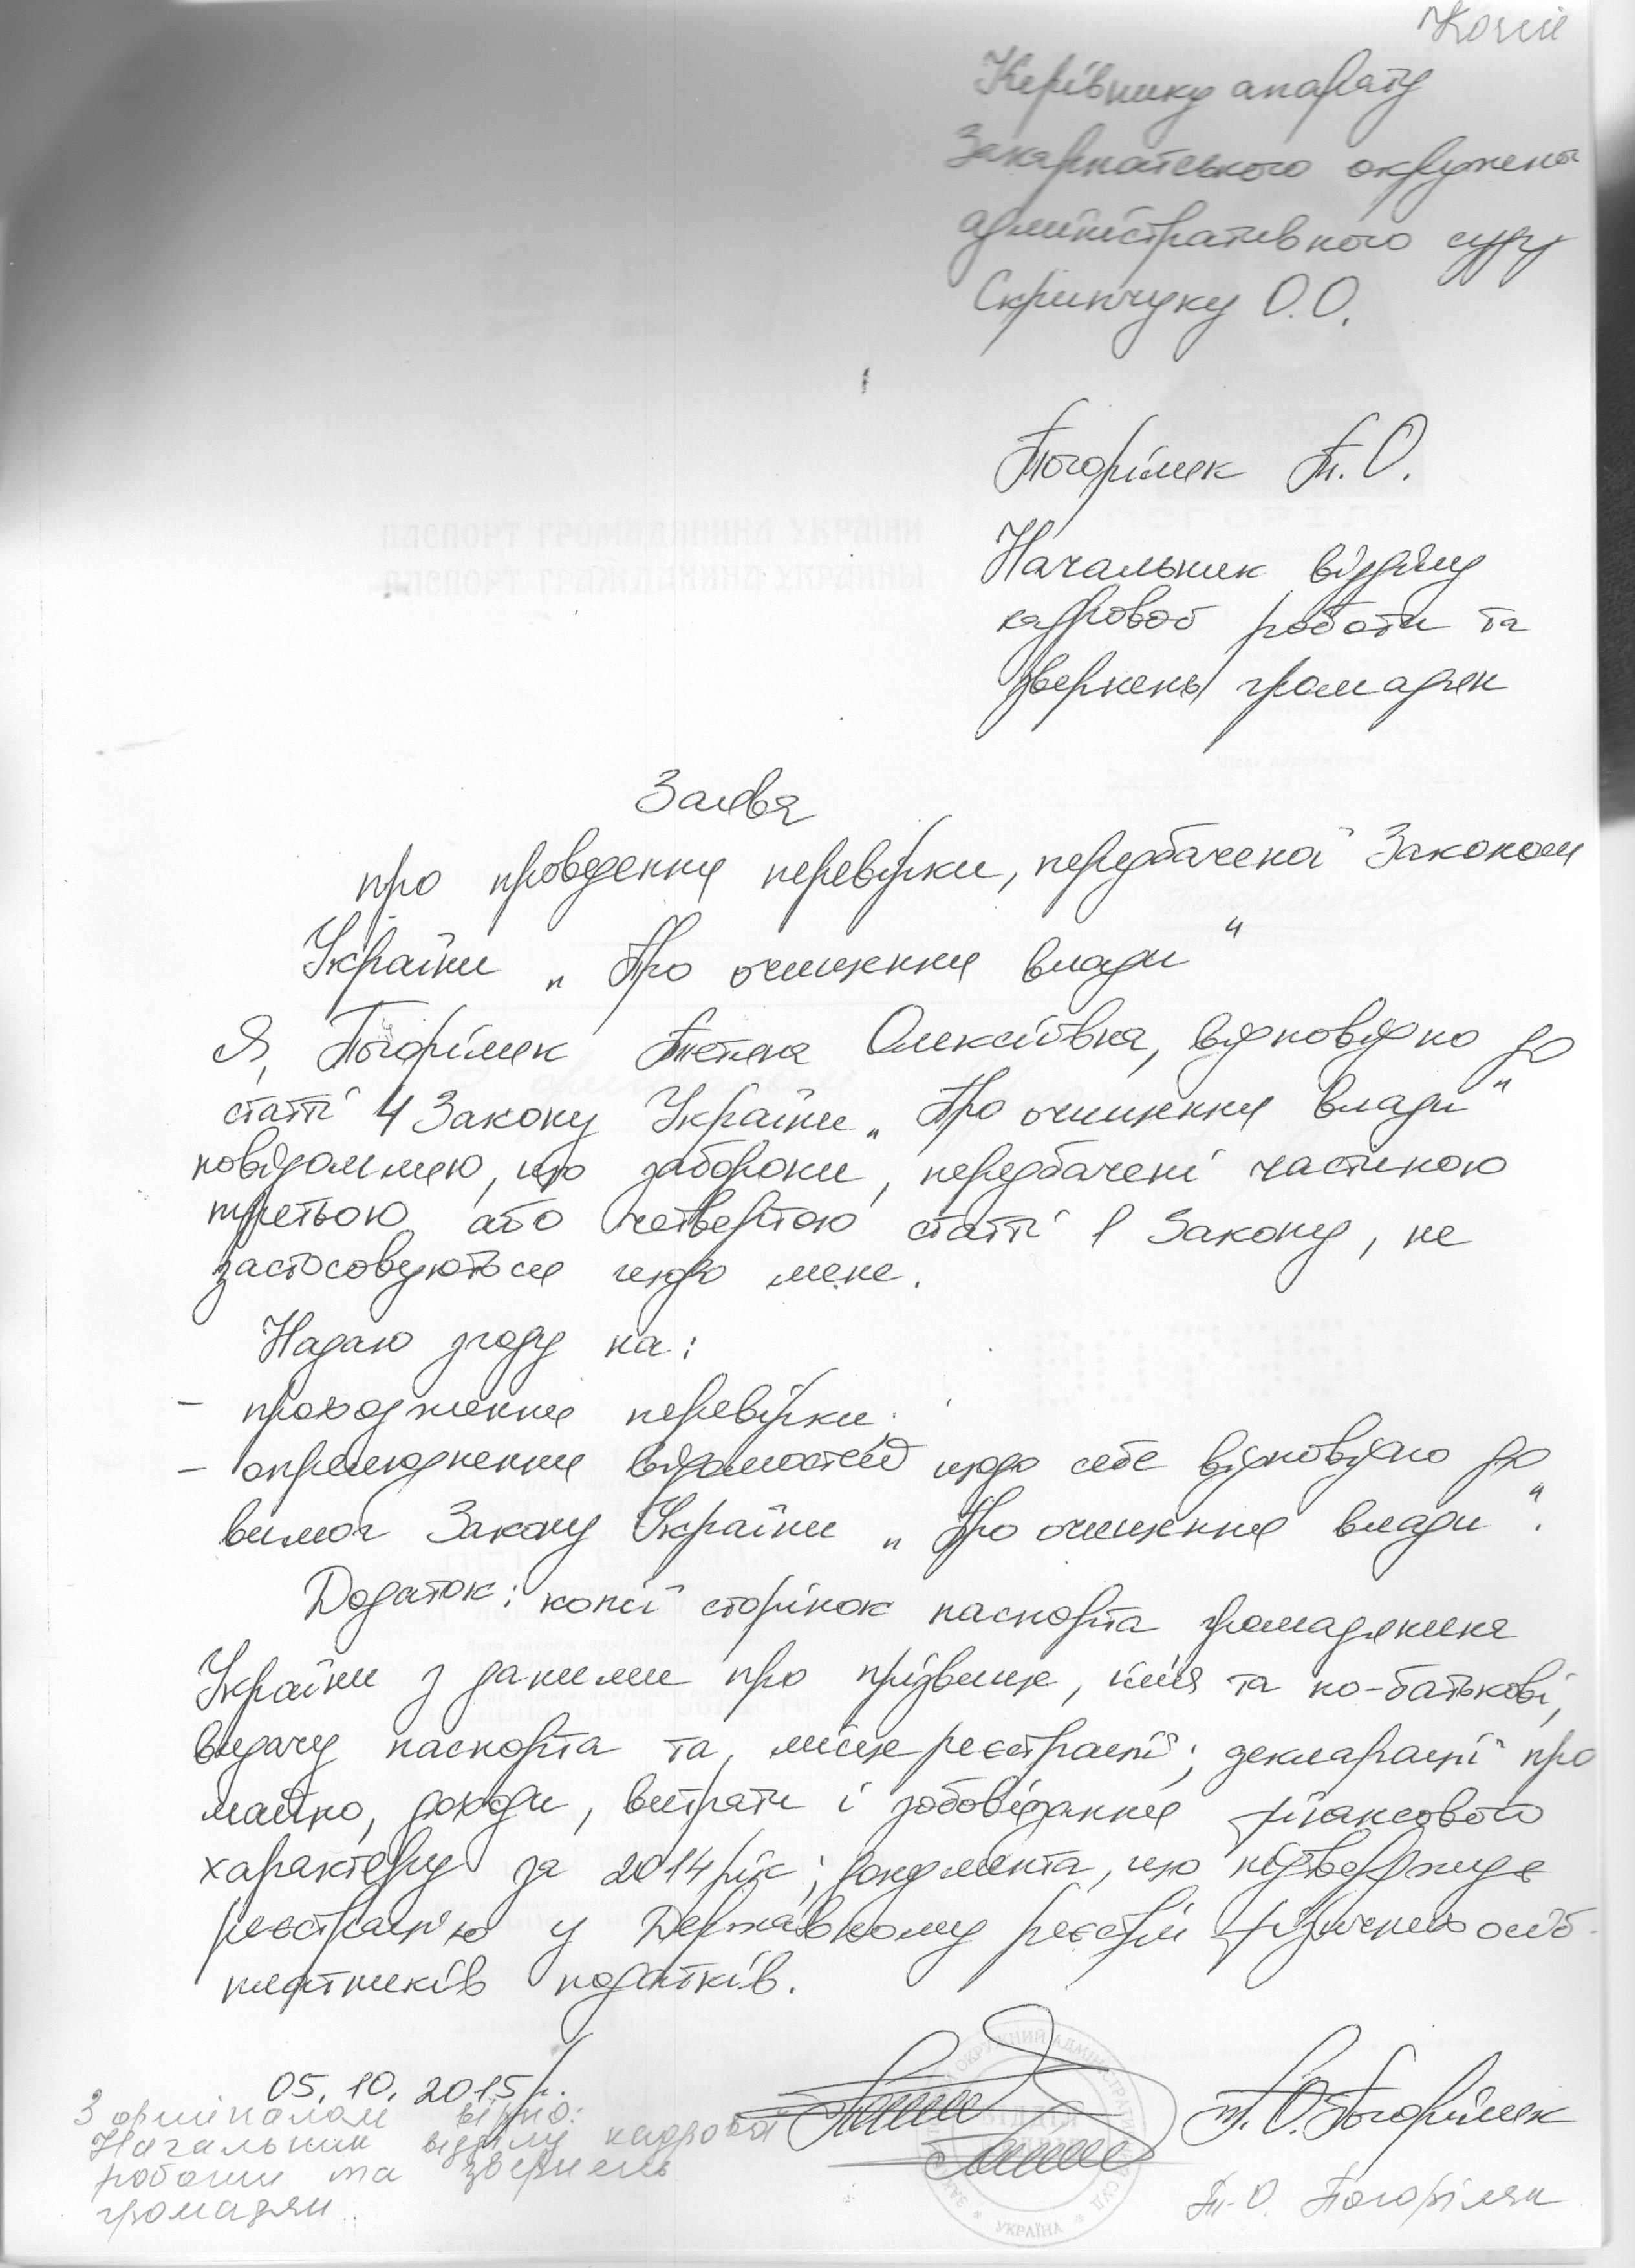 Копія
Керівнику апарату
Закарпатського окружного
адміністративного суду
Скрипчуку О.О.
Погоріляк Т.О.
Начальник відділу
кадрової роботи та
звернень громадян
ПАСПОРТ ГРОМАДЯНИНА УКРАЇНИ
ПАСПОРТ ГРАЖДАНИНА УКРАИНЫ
Заява
про проведення перевірки, передбаченої Законом
України „Про очищення влади"
Я, Погоріляк Тетяна Олексіївна, відповідно до
статті 4 Закону України „Про очищення влади"
повідомляю, що заборони, передбачені частиною
третьою або четвертою статті 1 Закону, не
застосовуються щодо мене.
Надаю згоду на:
- проходження перевірки;
- оприлюднення відомостей щодо себе відповідно до
вимог Закону України „Про очищення влади".
Додаток: копії сторінок паспорта громадянина
України з даними про прізвище, ім'я та по-батькові,
видачу паспорта та місце реєстрації; декларації про
майно, доходи, витрати і зобов'язання фінансового
характеру за 2014 рік; документа, що підтверджує
реєстрацію у Державному реєстрі фізичних осіб -
платників податків.
05.10.2015 р.
Т.О. Погоріляк
З оригіналом вірно:
Начальник відділу кадрової
роботи та звернень
громадян
Т.О. Погоріляк
ОКРУЖНИЙ АДМІНІСТРАТИВНИЙ СУД
УКРАЇНА